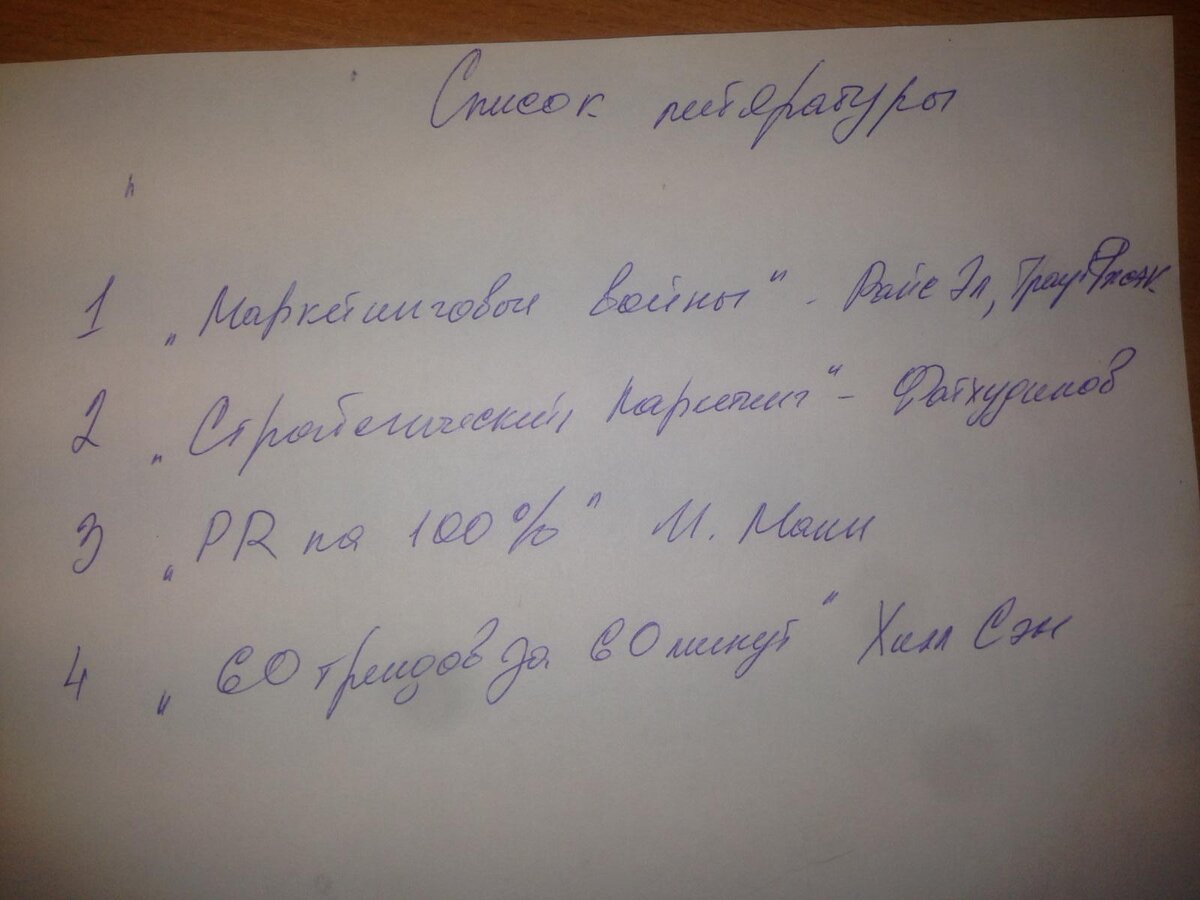 Список литературы
1 „Маркетинговые войны" - Райс Эл, Траут Джек
2 „Стратегический маркетинг" - Фатхудинов
3 „PR на 100%" И. Манн
4 „60 трендов за 60 минут" Хилл Сэм